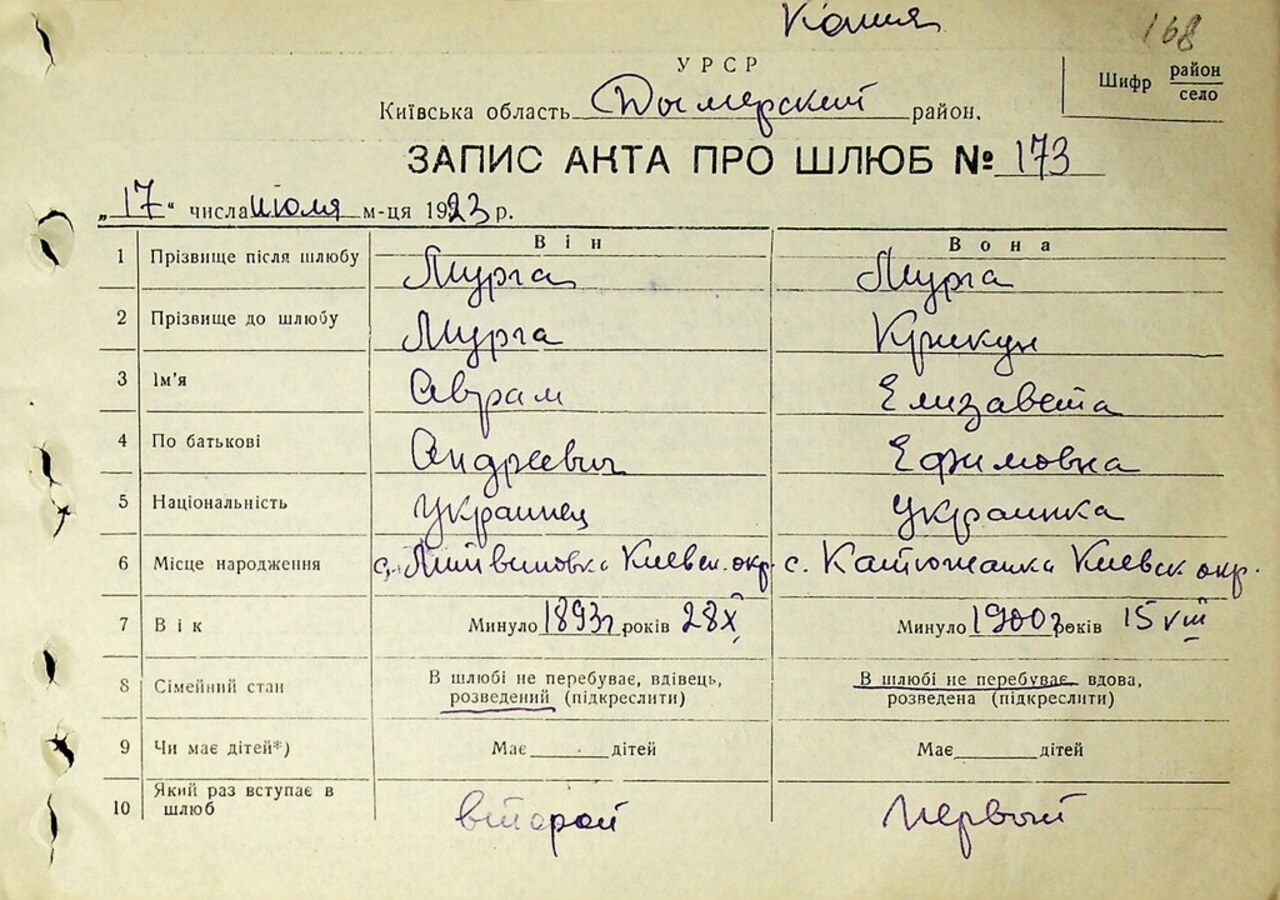 Копия
168
УРСР
Шифр район село
Київська область Дымерский район.
ЗАПИС АКТА ПРО ШЛЮБ № 173
„17“ числа июля м-ця 1923 р.
Він Вона
1 Прізвище після шлюбу Мурга Мурга
2 Прізвище до шлюбу Мурга Крикун
3 Ім'я Аврам Елизавета
4 По батькові Андреевич Ефимовна
5 Національність Украинец Украинка
6 Місце народження с. Литвиновка Киевск. окр. с. Катюжанка Киевск окр.
7 Вік Минуло 1893г років 28 X Минуло 1900г років 15 VIII
8 Сімейний стан В шлюбі не перебуває, вдівець, розведений (підкреслити) В шлюбі не перебуває, вдова, розведена (підкреслити)
9 Чи має дітей*) Має ______ дітей Має ______ дітей
10 Який раз вступає в шлюб второй первый